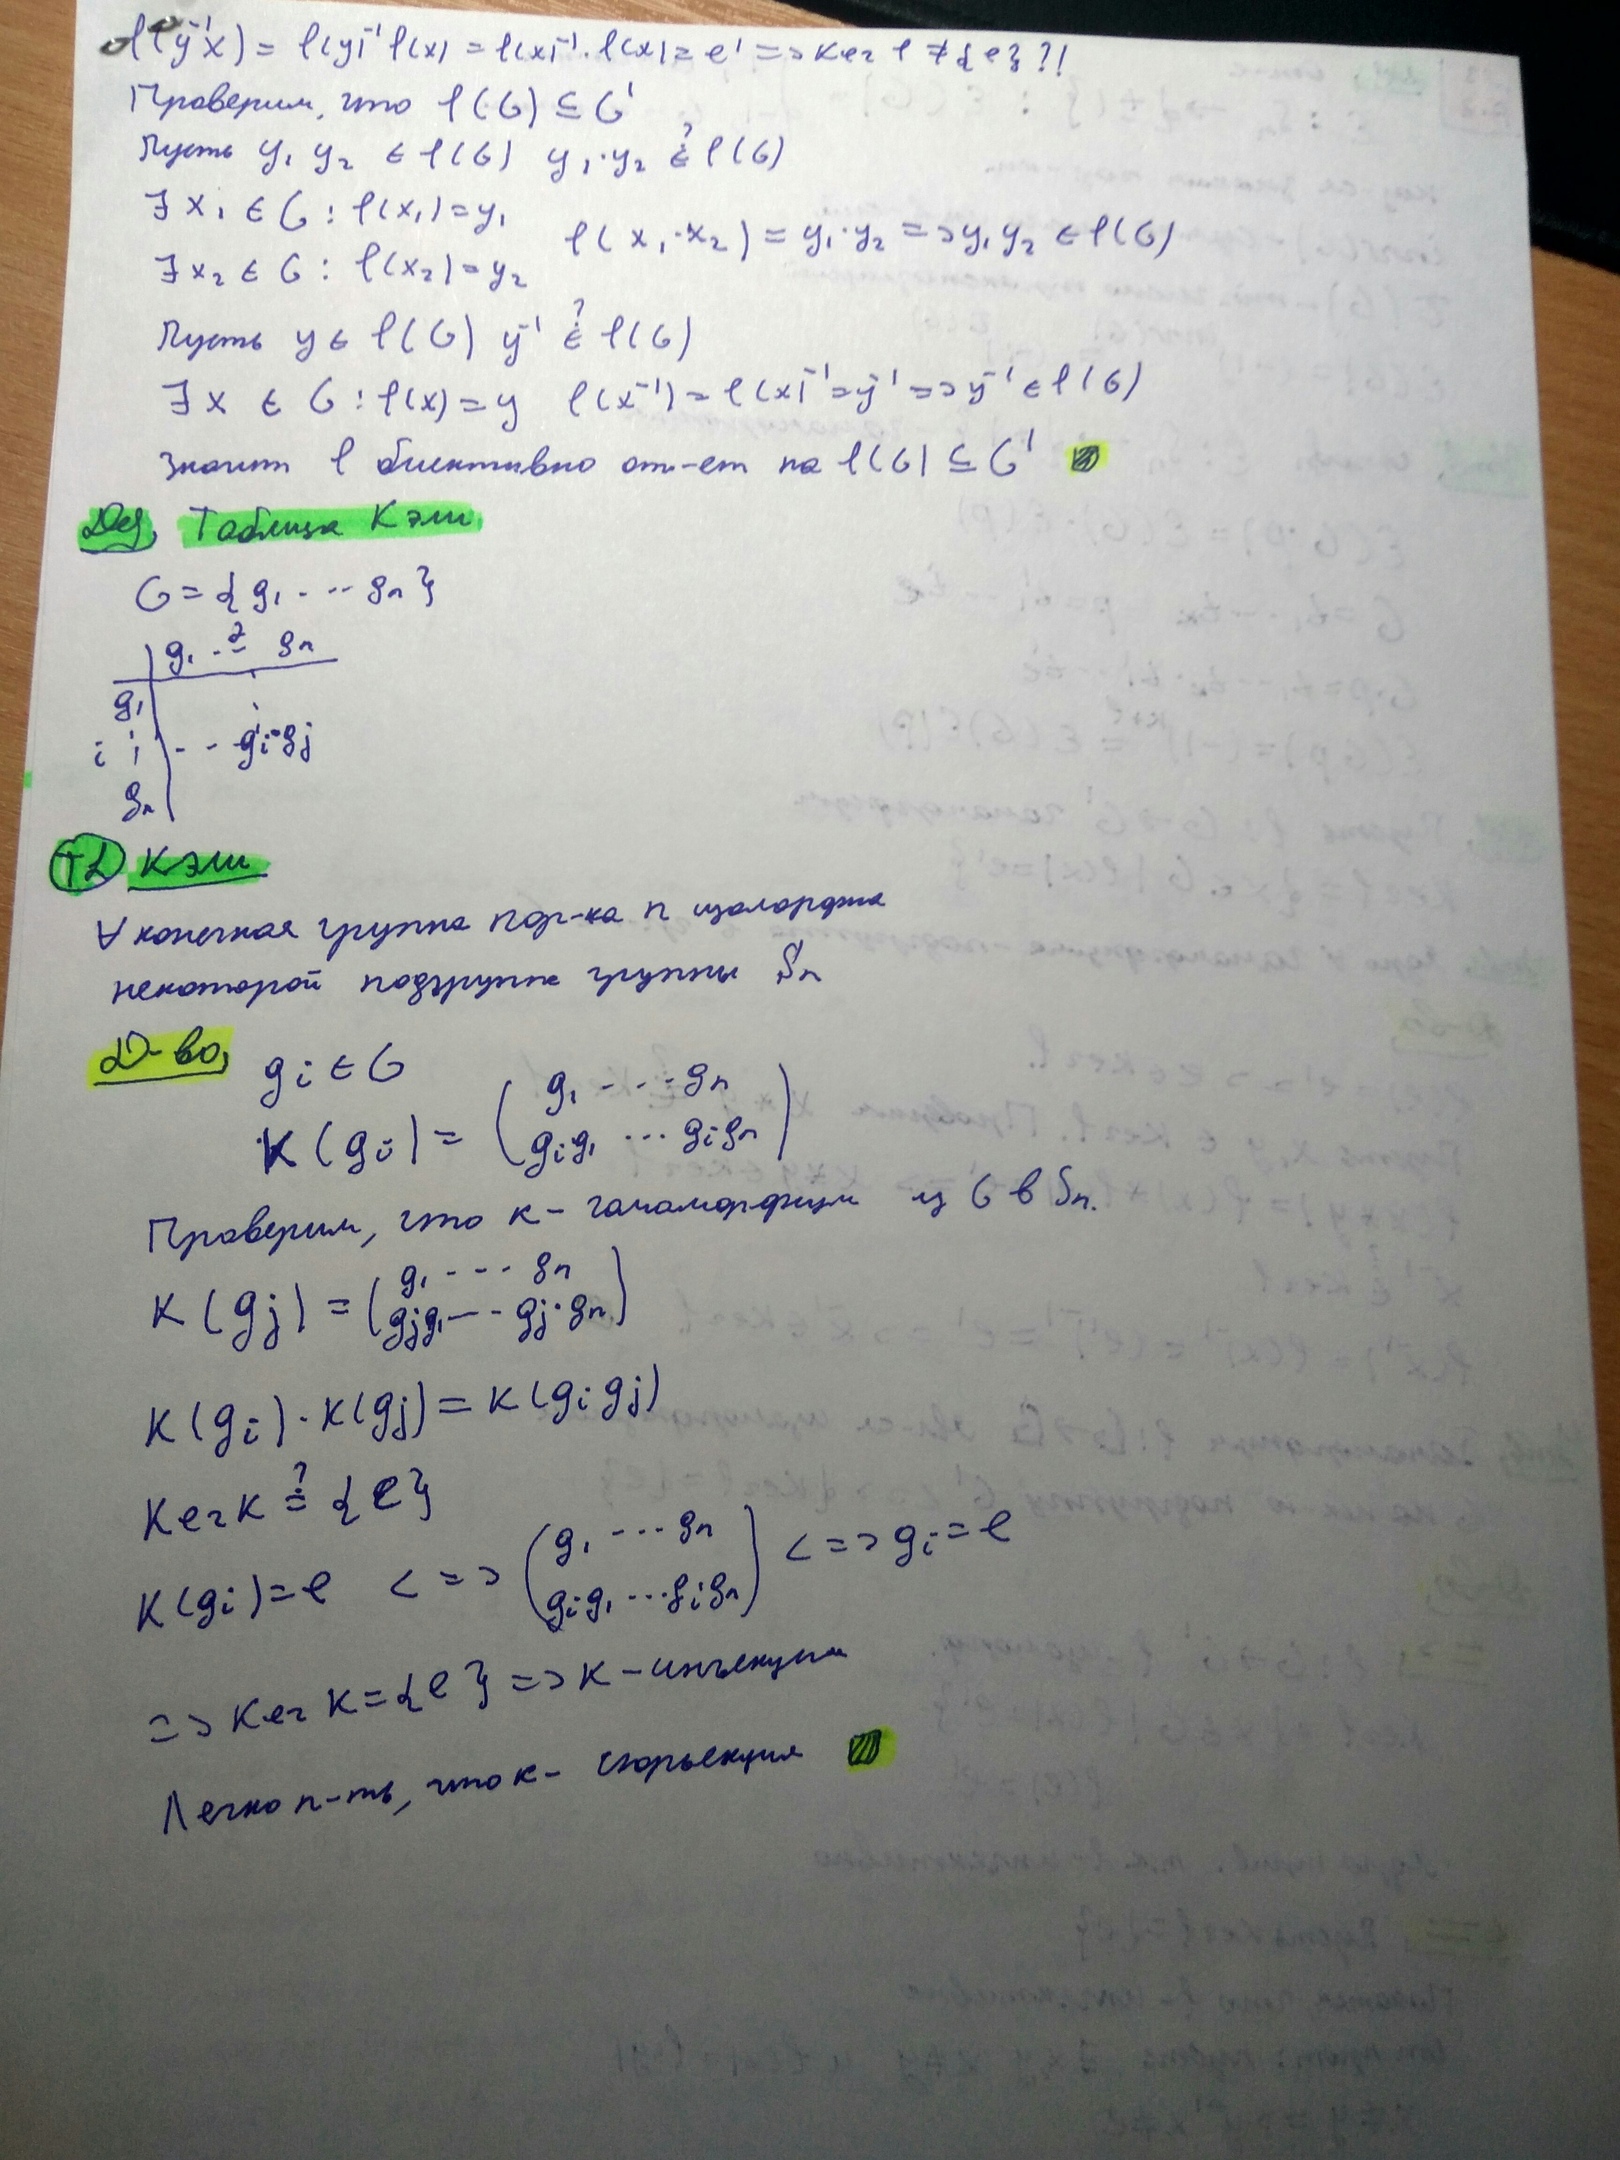 f(y⁻¹x) = f(y)⁻¹ f(x) = f(x)⁻¹·f(x) = e' => Ker f ≠ {e} ?!
Проверим, что f(G) ⊆ G'
Пусть y₁ y₂ ∈ f(G) y₁·y₂ ∈? f(G)
∃ x₁ ∈ G : f(x₁) = y₁
∃ x₂ ∈ G : f(x₂) = y₂
f(x₁·x₂) = y₁·y₂ => y₁y₂ ∈ f(G)
Пусть y ∈ f(G) y⁻¹ ∈? f(G)
∃ x ∈ G : f(x) = y f(x⁻¹) = f(x)⁻¹ = y⁻¹ => y⁻¹ ∈ f(G)
Значит f биективно от-ет на f(G) ⊆ G'
Def, Таблица Кэли
G = {g₁ ... gₙ}
g₁ ... j gₙ
g₁
i ⋮ -- gᵢ·gⱼ
gₙ
Т2 Кэли
∀ конечная группа пор-ка n изоморфна
некоторой подгруппе группы Sₙ
Д-во,
gᵢ ∈ G
K(gᵢ) = (g₁ ... gₙ
gᵢg₁ ... gᵢgₙ)
Проверим, что к - гомоморфизм из G в Sₙ.
K(gⱼ) = (g₁ ... gₙ
gⱼg₁ ... gⱼ·gₙ)
K(gᵢ)·K(gⱼ) = K(gᵢgⱼ)
Ker K =? {e}
K(gᵢ) = e <=> (g₁ ... gₙ
gᵢg₁ ... gᵢgₙ) <=> gᵢ = e
=> Ker K = {e} => K - инъекция
Легко п-ть, что к - сюръекция